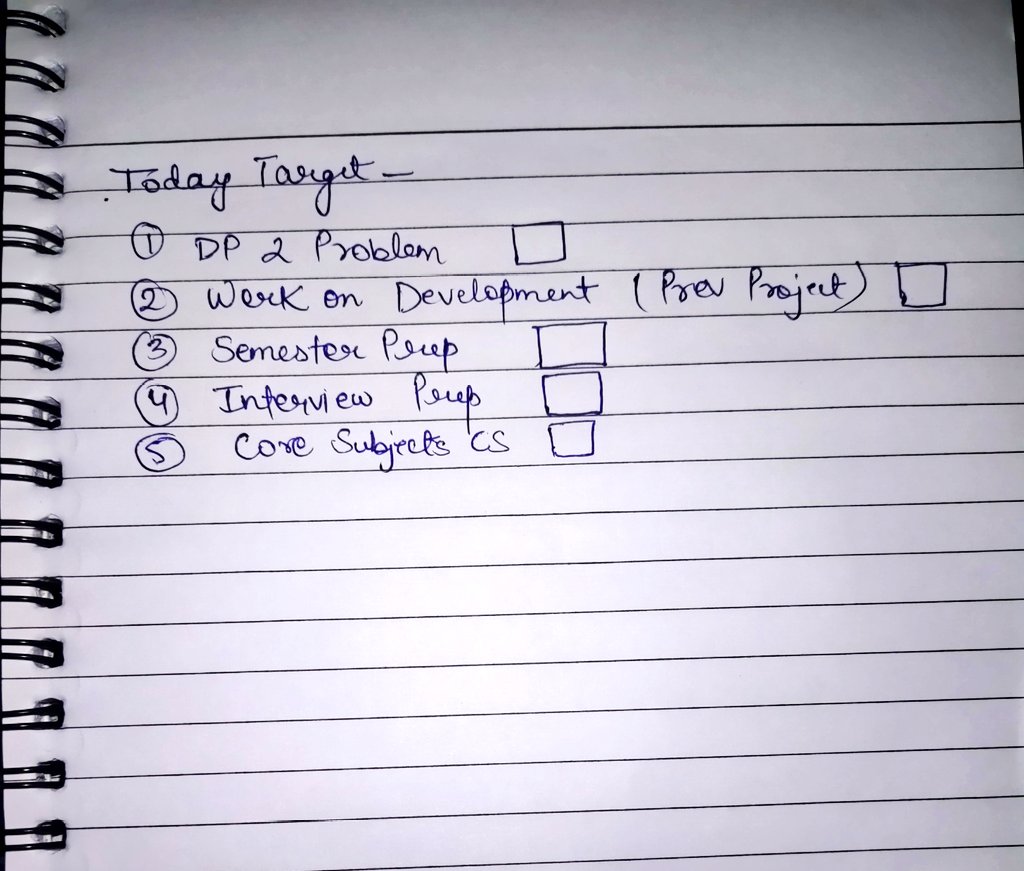 Today Target -
① DP 2 Problem
② Work on Development (Prev Project)
③ Semester Prep
④ Interview Prep
⑤ Core Subjects CS